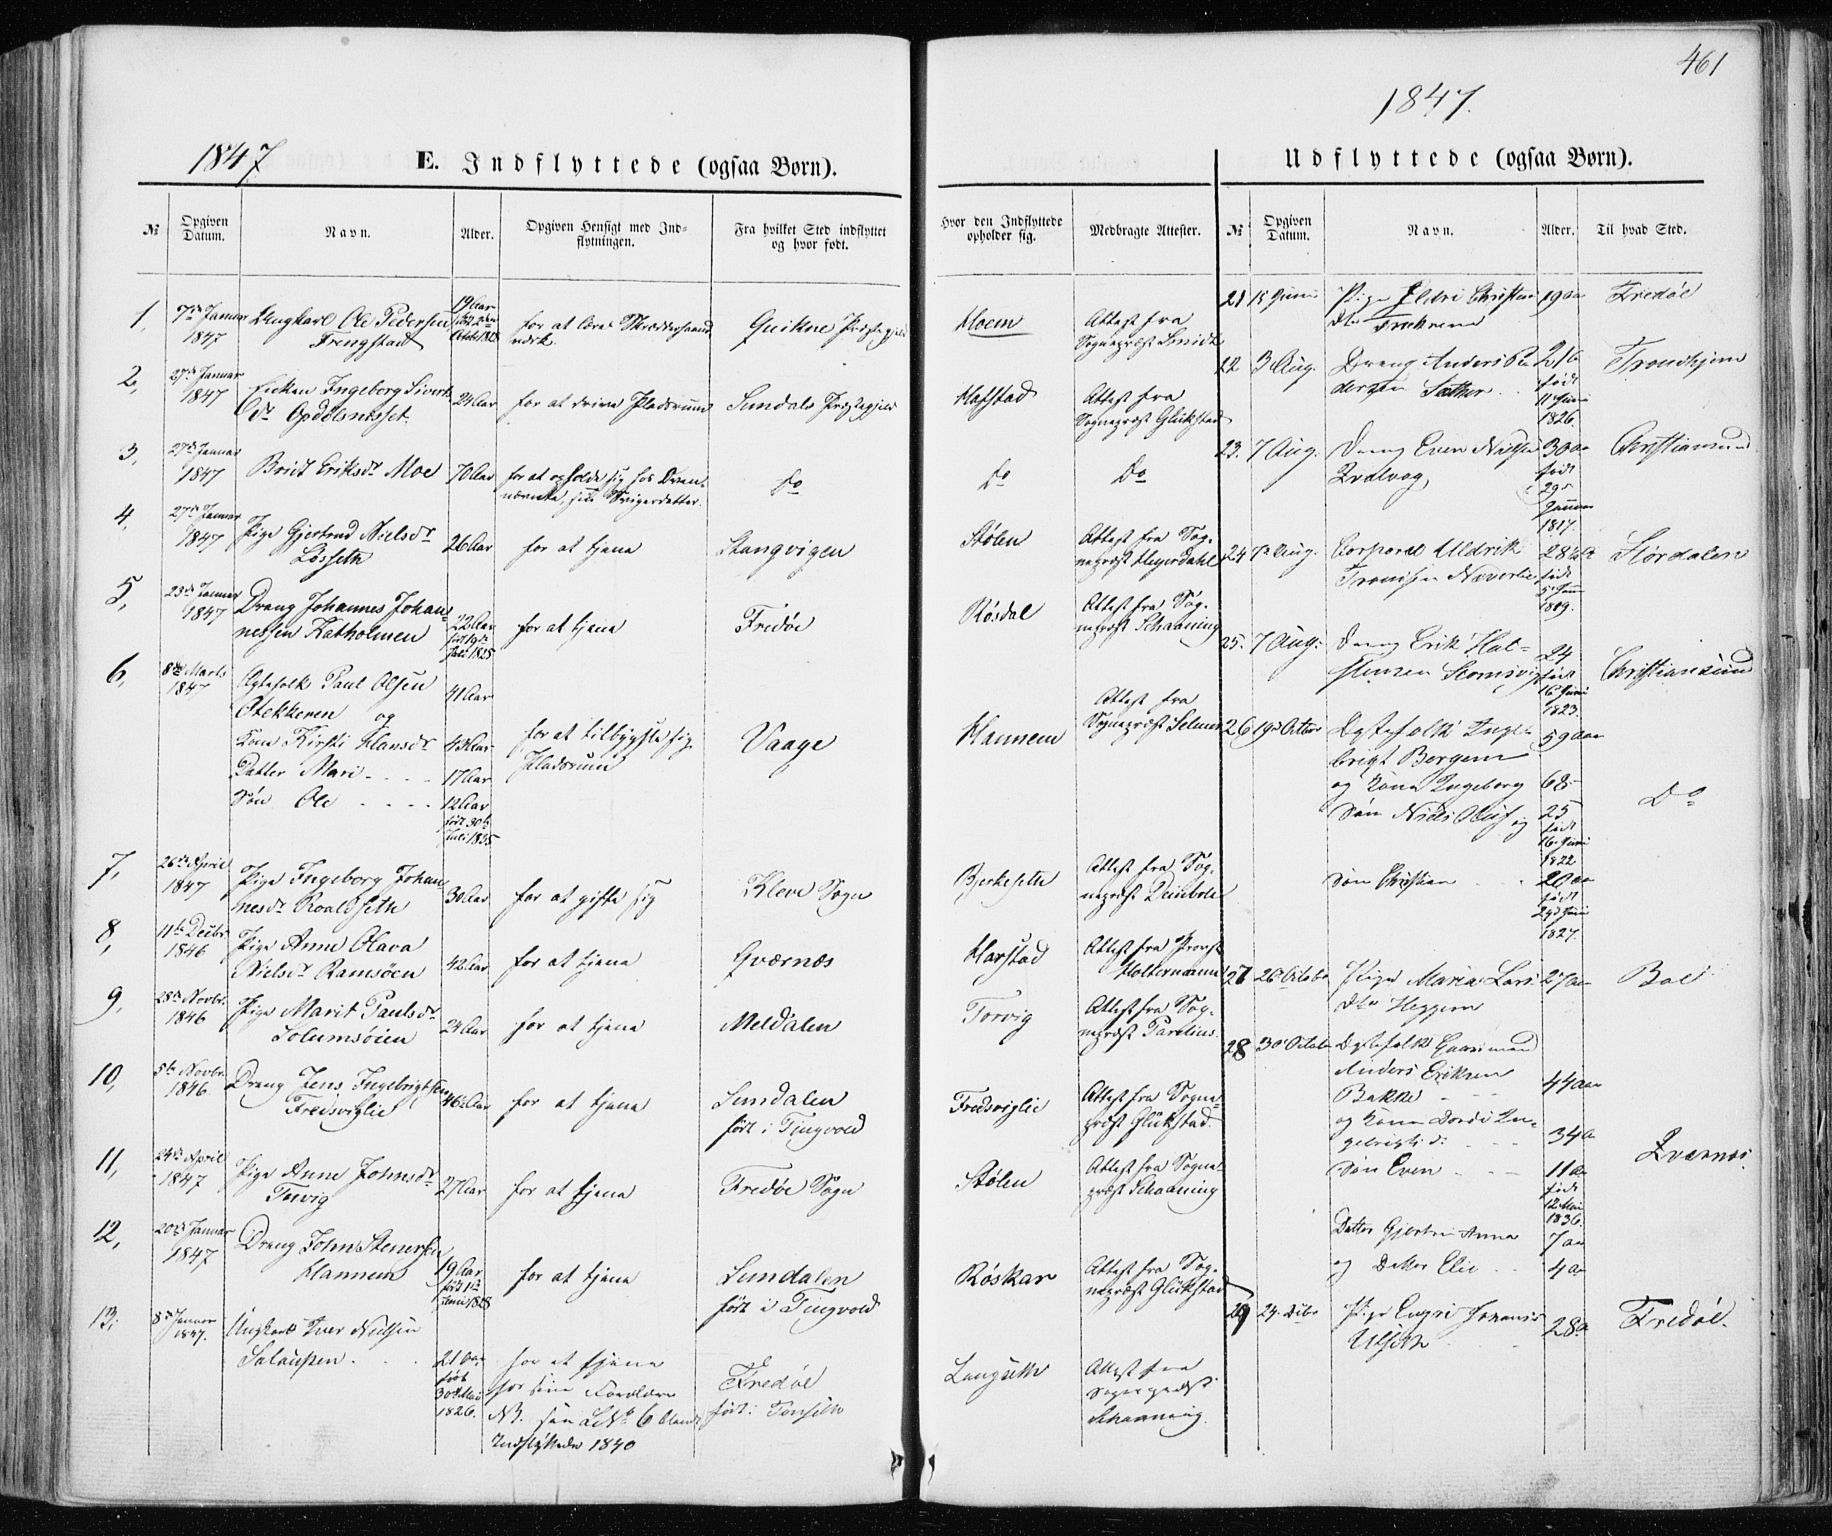 461
1847
1847.
E. Indflyttede (ogsaa Børn).
Udflyttede (ogsaa Børn).
№
Opgiven Datum.
Navn.
Alder.
Opgiven Hensigt med Indflytningen.
Fra hvilket Sted indflyttet og hvor født.
Hvor den Indflyttede opholder sig.
Medbragte Attester.
№
Opgiven Datum.
Navn.
Alder.
Til hvad Sted.
1, 7de Januar 1847 Ungkarl Ole Pedersen Frengstad 19 Aar født Octobr 1828 for at lære Skrædderhaandværk Qvikne Præstegjeld Moem Attest fra Sognepræst Smidt
2, 27de Januar 1847 Enken Ingeborg Siverts Dr Opdølsnesset 24 Aar for at drive Pladsrum Sundals Præstegjeld Hafstad Attest fra Sognepræst Glükstad
3, 27de Januar 1847 Brit Eriksdr Moe 70 Aar for at opholde sig hos Ovennævnte, sin Svigerdatter Do Do Do
4, 27de Januar 1847 Pige Gjertrud Nielsdr Løsseth 26 Aar for at tjene Stangvigen Stølen Attest fra Sognepræst Heyerdahl
5, 23de Januar 1847 Dreng Johannes Johannessen Katholmen 22 Aar født 19de Juli 1825 for at tjene Fredøe Røsdal Attest fra Sognepræst Schanning
6, 8de Marts 1847 Ægtefolk Paul Olsen Stekkeren og 41 Aar
Kone Kirsti Hansdr 43 Aar for at tilbygsle sig Pladsrum Vaage Hannem Attest fra Sognepræst Selmer
Datter Mari 17 Aar
Søn Ole 12 Aar født 30te Juli 1835
7, 26de April 1847 Pige Ingeborg Johannesdr Roaldseth 30 Aar for at gifte sig Kleve Sogn Bjerkeseth Attest fra Sognepræst Deinboll
8, 11te Decbr 1846 Pige Anne Olava Nielsdr Ramsöen 42 Aar for at tjene Qværnæs Harstad Attest fra Provst Holtermann
9, 28de Novbr. 1846 Pige Marit Paulsdr Solumsöien 24 Aar for at tjene Meldalen Torvig Attest fra Sognepræst Parelius
10, 5te Novbr. 1846 Dreng Jens Ingebrigtsen Fredsviglie 46 Aar for at tjene Sundalen født i Tingvold Fredsviglie Attest fra Sognepræst Glükstad.
11, 24de April 1847 Pige Anne Johnsdr Torvig 27 Aar for at tjene Fredøe Sogn Stølen Attest fra Sognepræst Schanning
12, 20de Januar 1847 Dreng John Stenersen Hannem 19 Aar født 1ste Juni 1828 for at tjene Sundalen født i Tingvold Røskar Attest fra Sognepræst Glükstad
13, 8de Januar 1847. Ungkarl Iver Nielsen Salaupen 21 Aar født 30te Mai 1826. for at tjene hos sine Forældre NB. see LNo 6 blandt Indflyttede 1840 Fredøe født i Langseth Attest fra Sognepræst Schanning.
21 15 Juni Pige Eldri Christensdtr 19 Aar Fredøe
22 3 Aug. Dreng Anders Pedersen Sæther 21 født 11 Juni 1826. Trondhjem
23. 7 Aug. Dreng Even Nielsen Kvalvag, 30 Aar født 29 Januar 1817. Christiansund
24 7de Aug. Corporal Uldrik Næverlie 28 født 1819. Størdalen
25. 7 Aug. Dreng Erik Halstensen 24 født 16 Juni 1823. Christiansund
26 19de Octbr Ægtefolk Ingebrigt Bergem 59 Aar
og Kone Ingeborg 68
Søn Niels Oluf og 25 født 16 Juni 1822 Do
Søn Christian 20 Aar født 29 Juni 1827.
27 26 Octobr Pige Maria Larsdtr Heggem 27 Aar Boe
28 30 Octobr Ægtefolk Gaardmand Anders Eriksen Bakke 44 Aar
og Kone Dordi Ingebrigtsd: 34 Aar
Søn Even 11 Aar født 12 Mai 1836. Kvernes.
Datter Gjertru Anna 7 Aar
og Datter Elie 4 Aar
29 24. Dcbr Pige Ingri 28 Aar Fredøe.